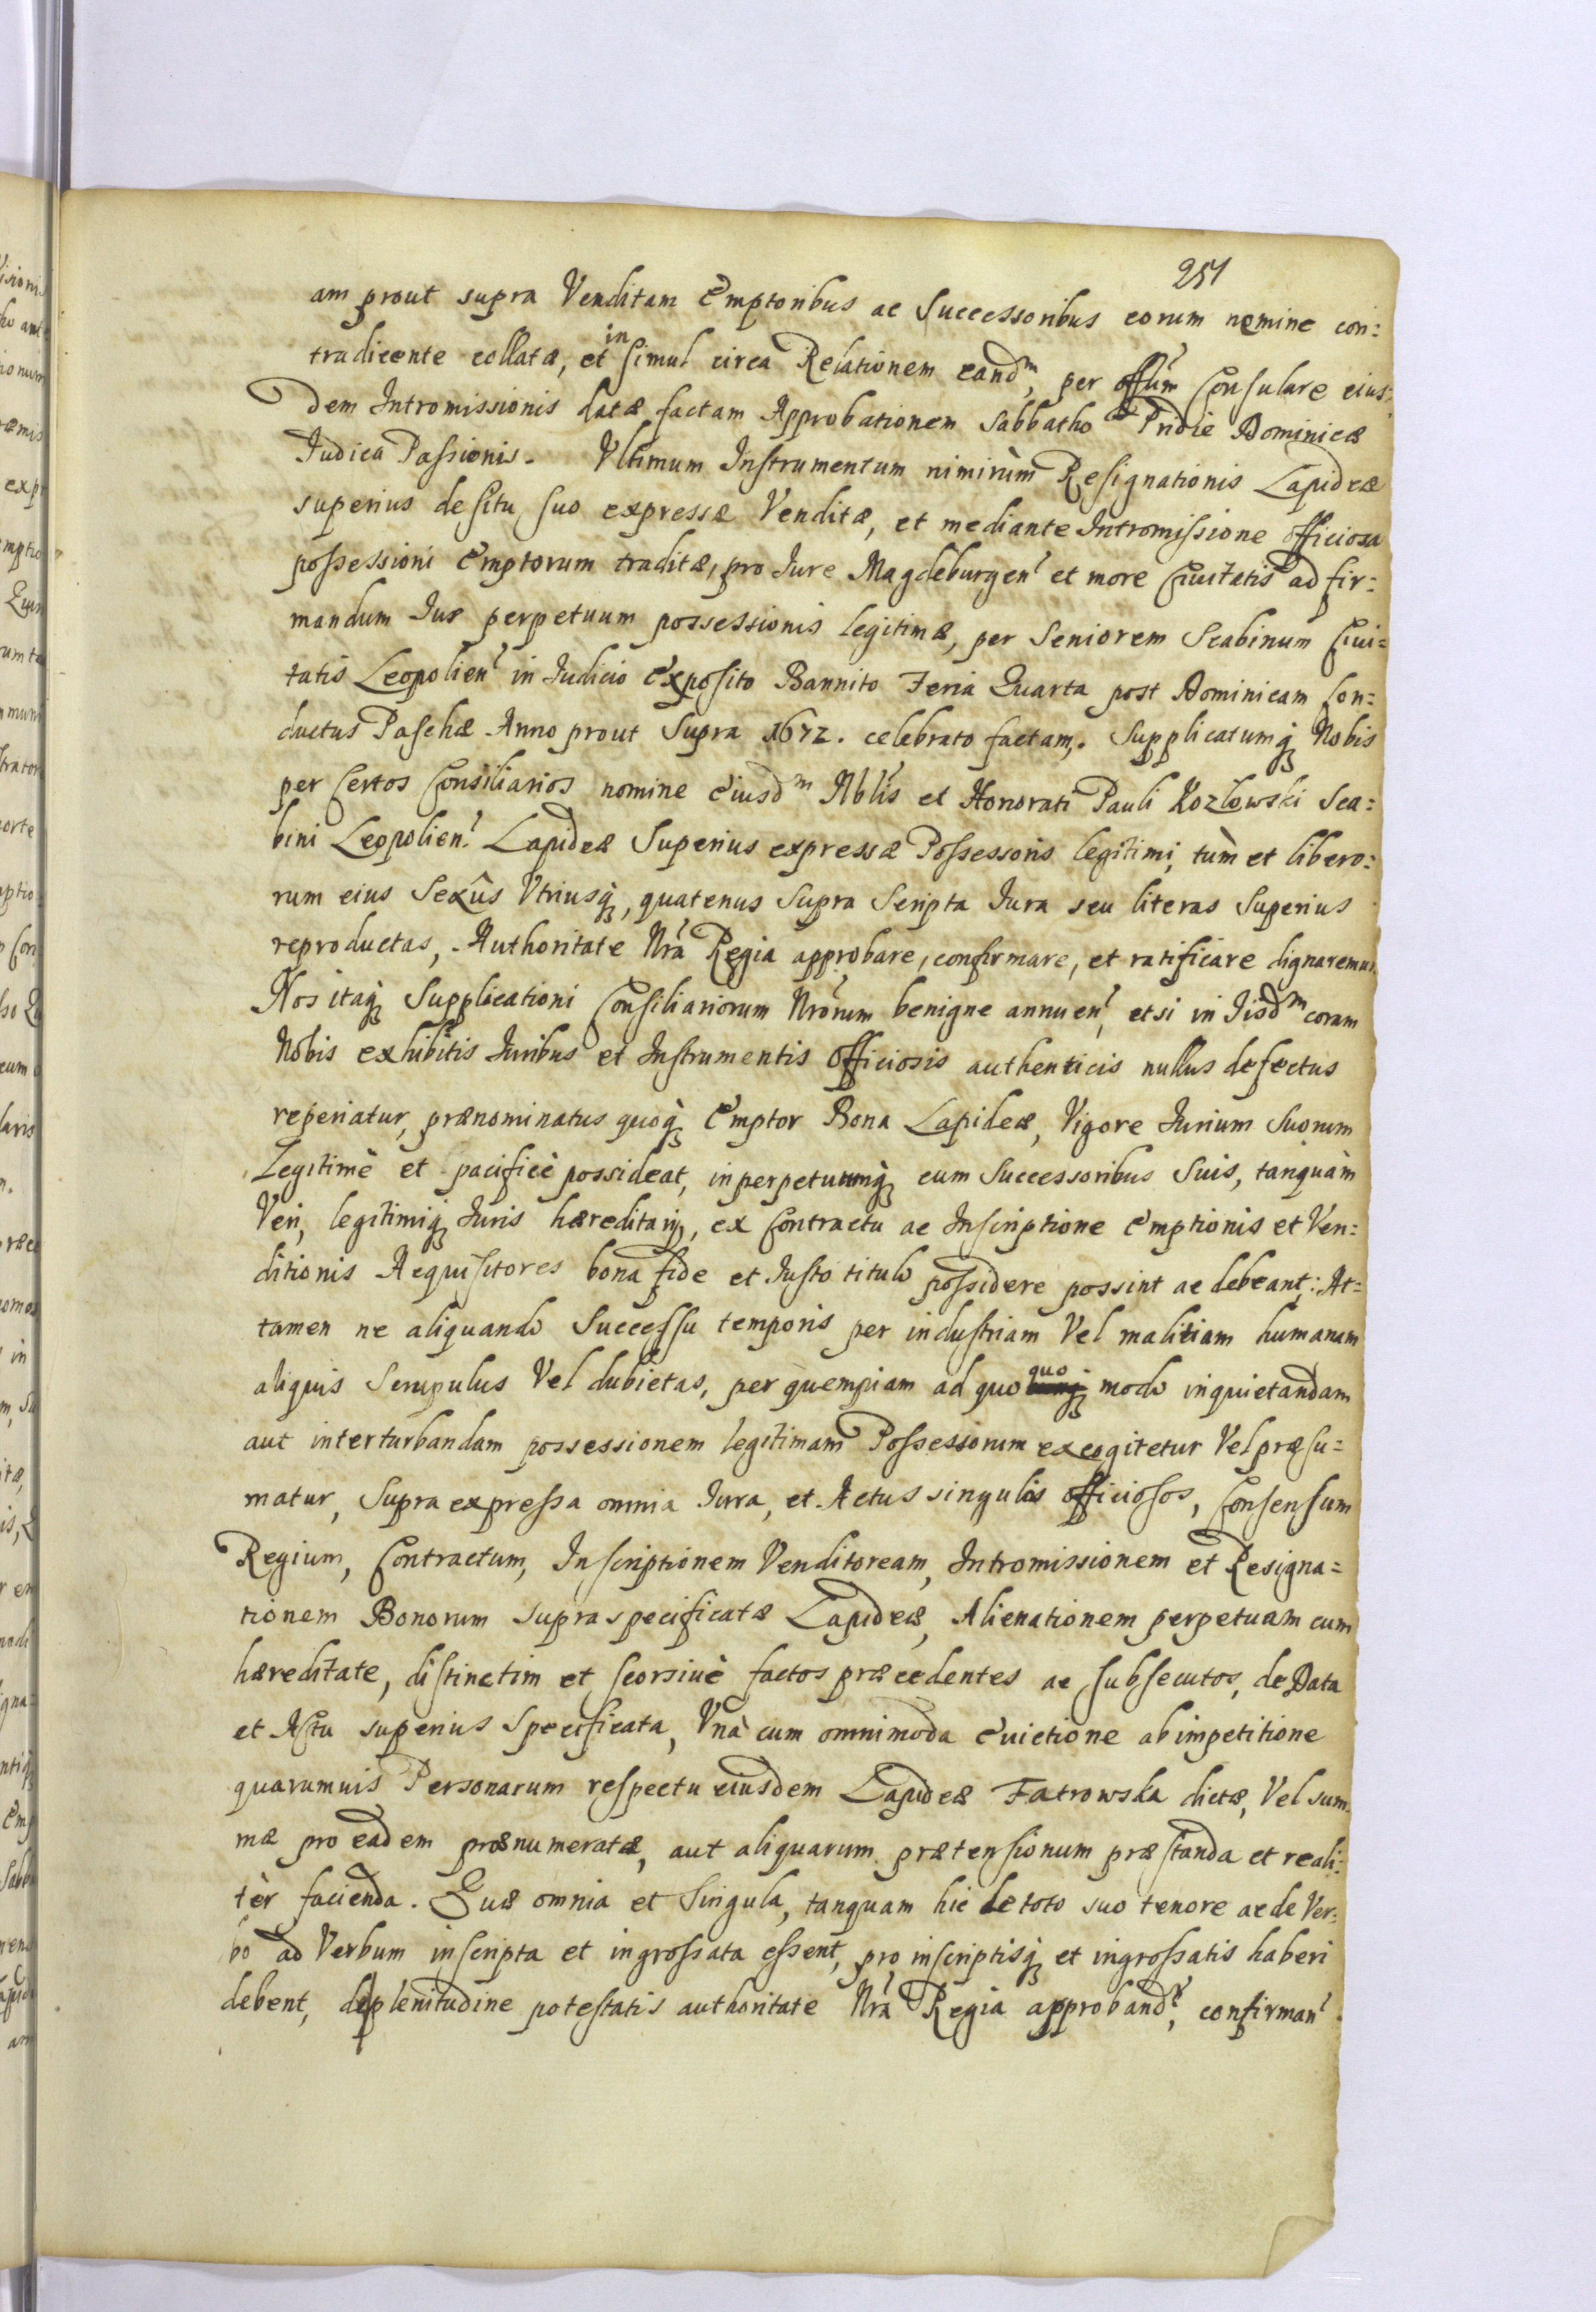 251
am prout supra Venditam Emptoribus ac Successoribus eorum nemine con=
tradicente collatæ, et in simul circa Relationem eand^m, per offum Consulare eius=
dem Intromissionis datæ factam Approbationem Sabbatho Pridie Dominicæ
Iudica Passionis. Vltimum Instrumentum nimirùm Resignationis Lapideæ
superius de situ suo expressæ Venditæ, et mediante Intromissione officiosa
possessioni Emptorum traditæ, pro Iure Magdeburgen et more Ciuitatis ad fir=
mandum Ius perpetuum possessionis legitimæ, per Seniorem Scabinum Ciui=
tatis Leopolien in Iudicio Exposito Bannito Feria Quarta post Dominicam Con=
ductus Paschæ Anno prout Supra 1672. celebrato factam. Supplicatumq Nobis
per Certos Consiliarios nomine Eiusd^m Nblis et Honorati Pauli Kozlowski Sca=
bini Leopolien. Lapideæ Superius expressæ Possessoris legitimi, tùm et libero=
rum eius Sexûs Vtriusq, quatenus Supra Scripta Iura seu literas Superius
reproductas, Authoritate Nrâ Regia approbare, confirmare, et ratificare dignaremur.
Nos itaq Supplicationi Consiliariorum Nrorum benigne annuen, etsi in Iisd^m coram
Nobis exhibitis Iuribus et Instrumentis officiosis authenticis nullus defectus
reperiatur, prænominatus quoq Emptor Bona Lapideæ, Vigore Iurium Suorum
Legitimè et pacificè possideat, inperpetuumq cum Successoribus Suis, tanquàm
Veri, legitimiq Iuris hæreditarij, ex Contractu ac Inscriptione Emptionis et Ven=
ditionis Acquisitores bona fide et Iusto titulo possidere possint ac debeant: At=
tamen ne aliquando Successu temporis per industriam Vel malitiam humanam
aliquis Scrupulus Vel dubietas, per quempiam ad quo quo modo inquietandam
aut interturbandam possessionem legitimam Possessorum excogitetur Vel præsu=
matur, Supra expressa omnia Iura, et Actus singulos officiosos, Consensum
Regium, Contractum, Inscriptionem Venditoream, Intromissionem et Resigna=
tionem Bonorum supraspecificatæ Lapideæ, Alienationem perpetuam cum
hæreditate, distinctim et seorsiuè factos præcedentes ac subsecutos, de Data
et Actu superius Specificata, Vnà cum omnimoda Euictione ab impetitione
quarumuis Personarum respectu eiusdem Lapideæ Fatrowska dictæ, Vel sum=
mæ pro eadem prænumeratæ, aut aliquarum prætensionum præstanda et reali=
tèr facienda. Quæ omnia et Singula, tanquam hic de toto suo tenore ac de Ver=
bo ad Verbum inscripta et ingrossata essent, pro inscriptisq et ingrossatis haberi
debent, de plenitudine potestatis authoritate Nrâ Regia approband, confirman.